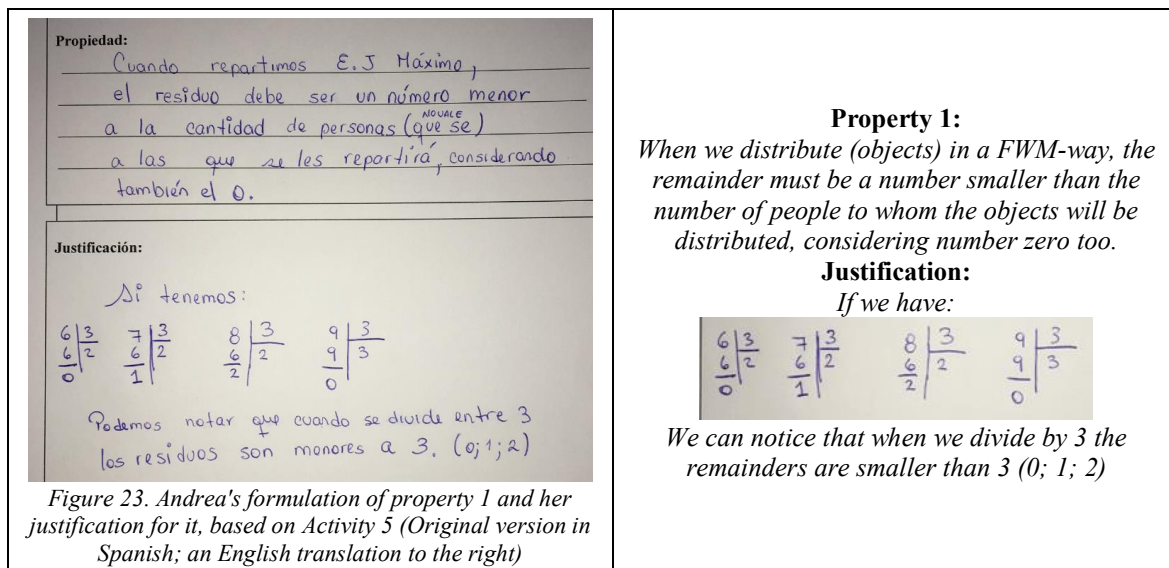 Propiedad:
Cuando repartimos E.J Máximo,
el residuo debe ser un número menor
NO VALE
a la cantidad de personas (que se)
a las que se les repartirá, considerando
también el 0.
Justificación:
Si tenemos:
6 3 7 3 8 3 9 3
6 2 6 2 6 2 9 3
0 1 2 0
Podemos notar que cuando se divide entre 3
los residuos son menores a 3. (0; 1; 2)
Figure 23. Andrea's formulation of property 1 and her
justification for it, based on Activity 5 (Original version in
Spanish; an English translation to the right)
Property 1:
When we distribute (objects) in a FWM-way, the
remainder must be a number smaller than the
number of people to whom the objects will be
distributed, considering number zero too.
Justification:
If we have:
6 3 7 3 8 3 9 3
6 2 6 2 6 2 9 3
0 1 2 0
We can notice that when we divide by 3 the
remainders are smaller than 3 (0; 1; 2)